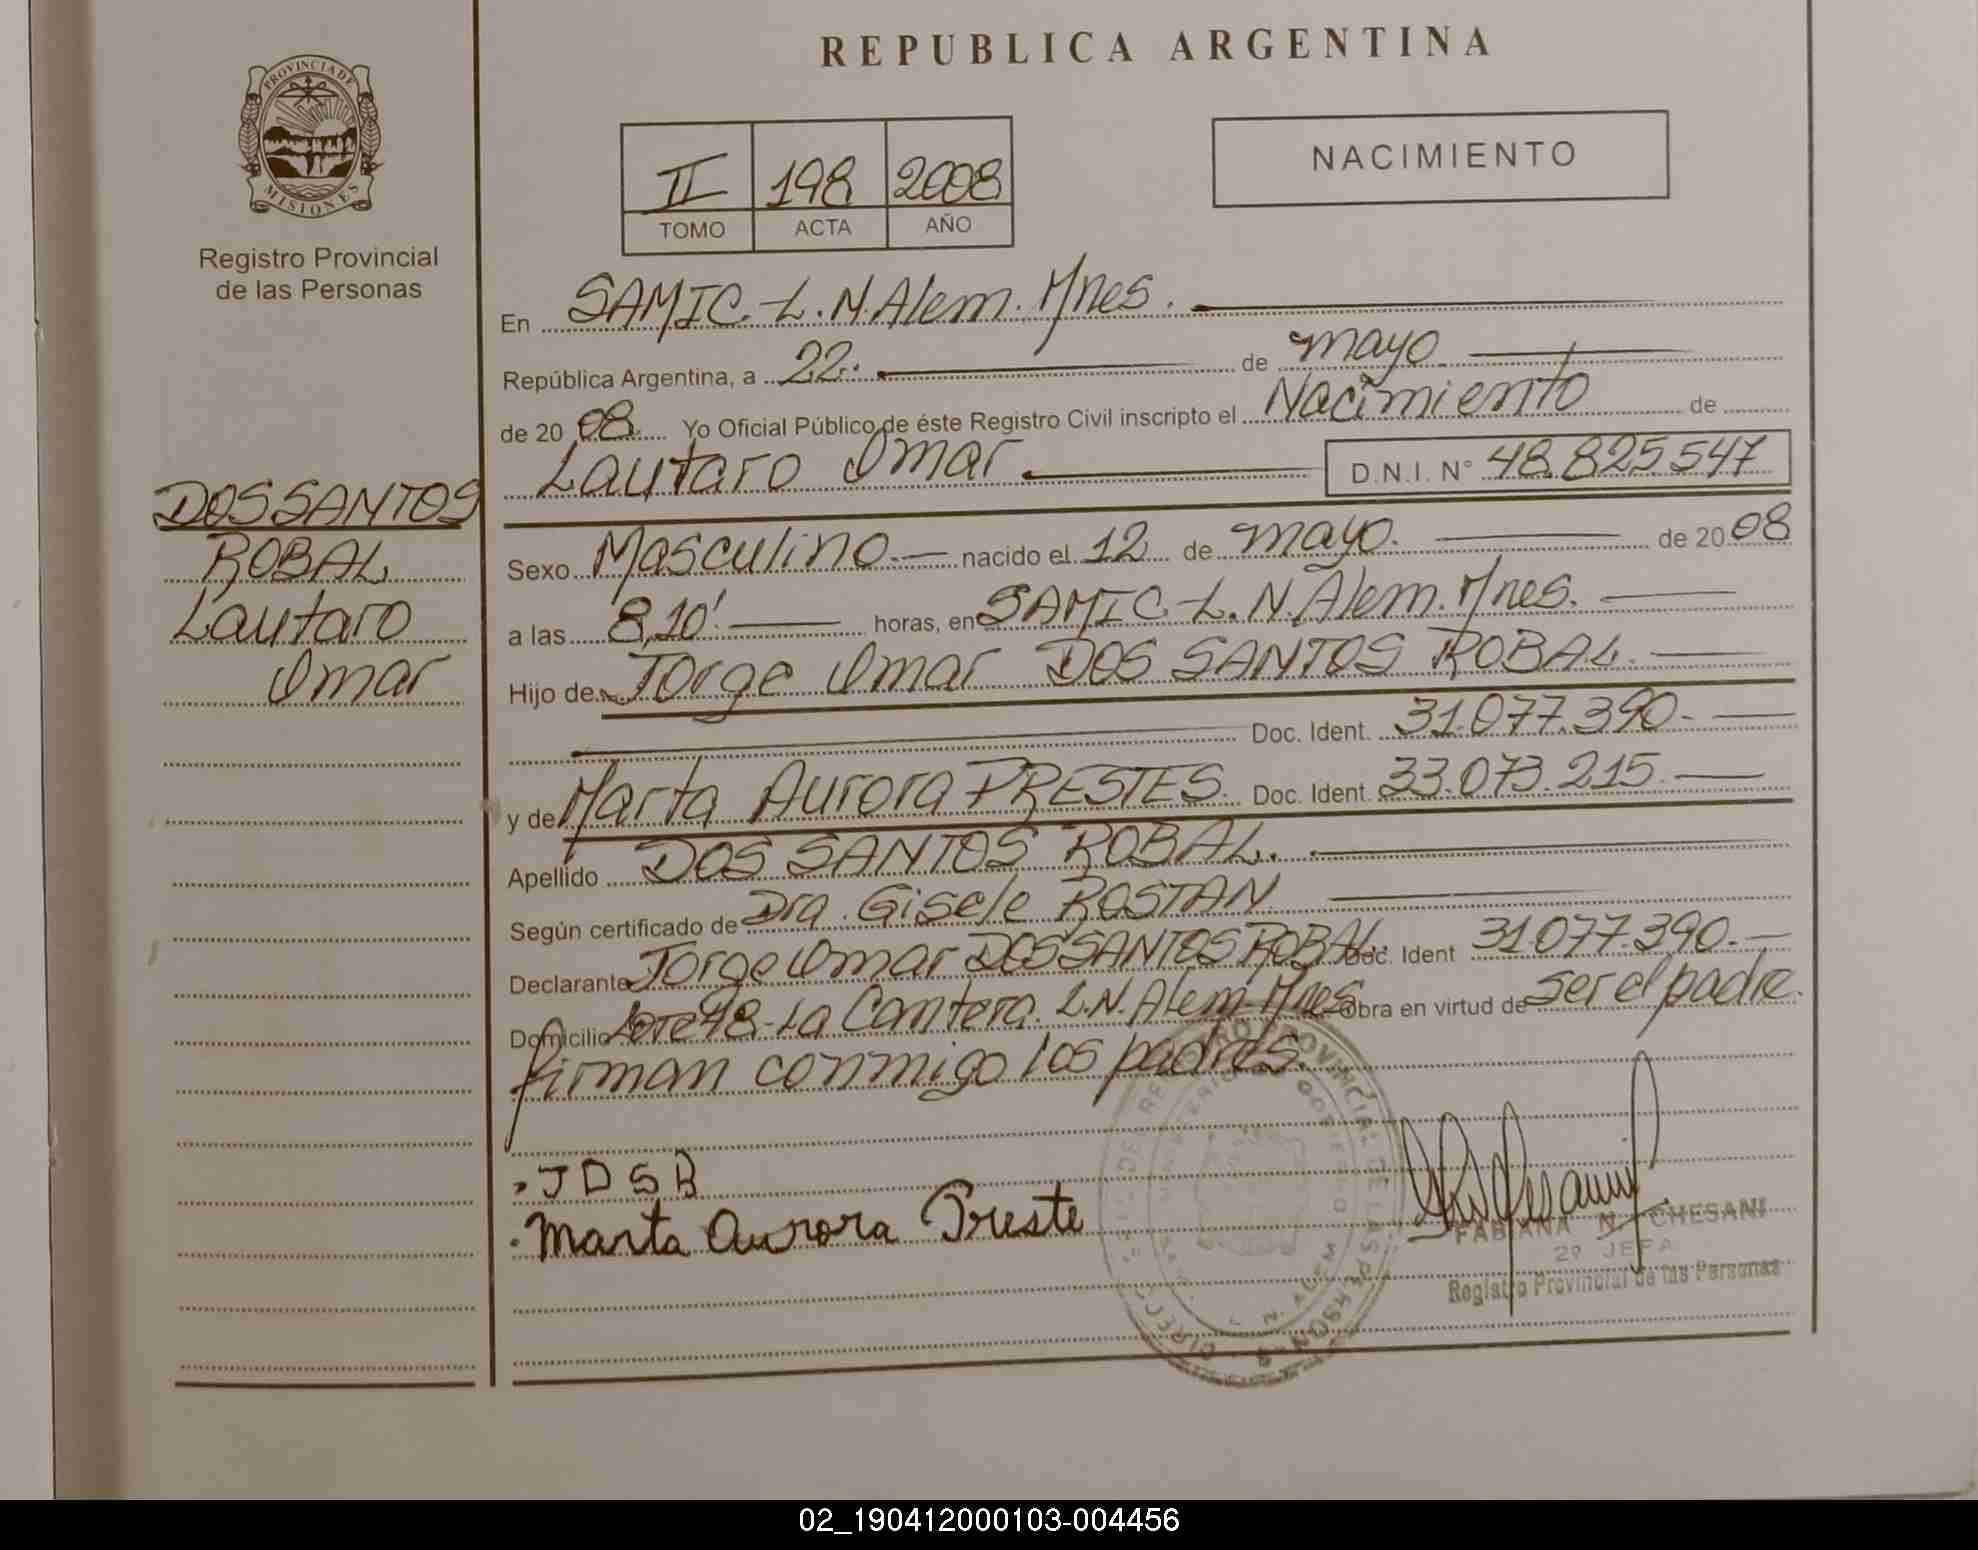 REPUBLICA ARGENTINA
PROVINCIA DE
MISIONES
Registro Provincial
de las Personas
II 198 2008
TOMO ACTA AÑO
NACIMIENTO
DOS SANTOS
ROBAL
Lautaro
Omar
En SAMIC.-L.N.Alem.Mnes.
República Argentina, a 22. de mayo
de 2008 Yo Oficial Público de éste Registro Civil inscripto el Nacimiento de
Lautaro Omar D.N.I. N° 48.825.547
Sexo Masculino.- nacido el 12 de mayo. de 2008
a las 8,10' horas, en SAMIC-L.N.Alem.Mnes.
Hijo de Jorge Omar DOS SANTOS ROBAL.
Doc. Ident. 31.077.390.-
y de Marta Aurora PRESTES. Doc. Ident. 33.073.215.-
Apellido DOS SANTOS ROBAL.
Según certificado de Dra. Gisele ROSTAN
Declarante Jorge Omar DOS SANTOS ROBAL. Doc. Ident 31.077.390.-
Domicilio Lote 48-La Cantera. L.N.Alem-Mnes Obra en virtud de ser el padre.
firman conmigo los padres.
JDSR
Marta Aurora Preste
FABIANA N. CHESANI
2º JEFA
Registro Provincial de las Personas
02_190412000103-004456